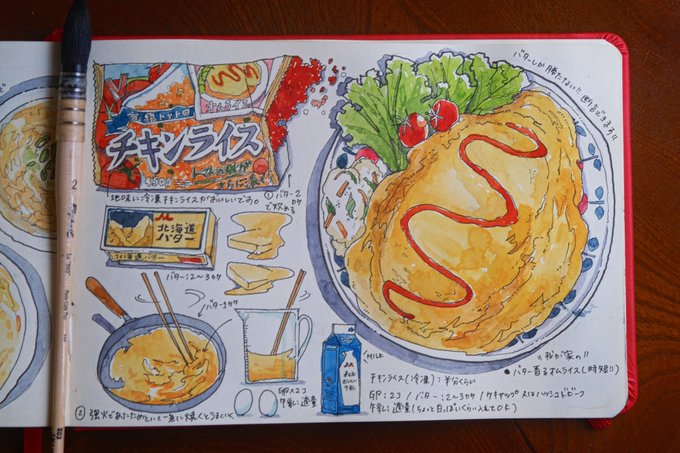 バターしか勝たない!! 断言できます!!
チキンライス
オムライス
450g
地味に冷凍チキンライスがおいしいです。
①バター2カケ
で炒める
北海道
バター
北海道バター
バター:2〜3カケ
バター1カケ
卵×2コ
牛乳:適量
MILK
おいしい
牛乳
MILK
"我が家の"
●バター香るオムライス(時短!!)
チキンライス(冷凍):半分くらい
卵:2コ / バター:2〜3カケ / ケチャップ 又はハッシュドビーフ
牛乳:適量(ちょっと白っぽいくらい入れてOK)
②強火であたためといて一気に焼くとうまくいく